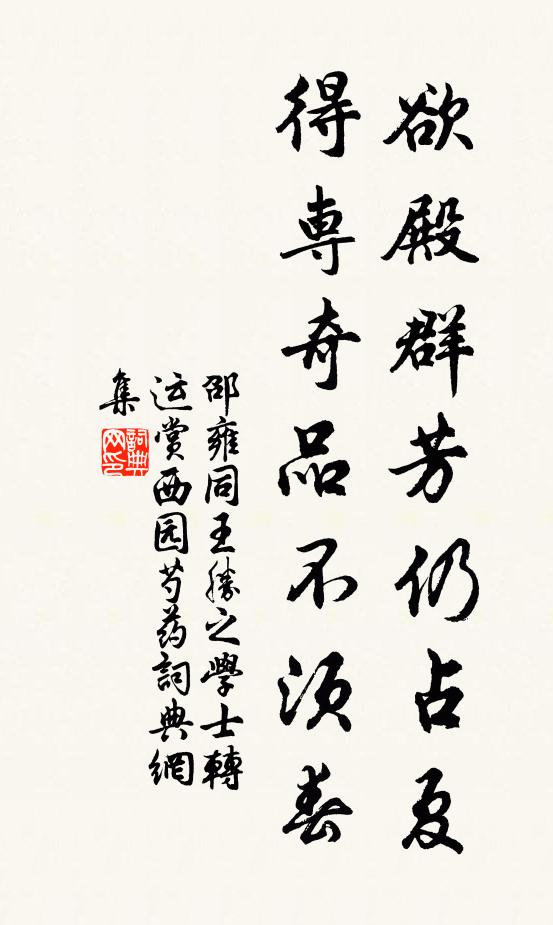 欲殿群芳仍占夏
得専奇品不須春
邵雍同王勝之學士轉
运赏西园芍药詞典網
集
詞典网印